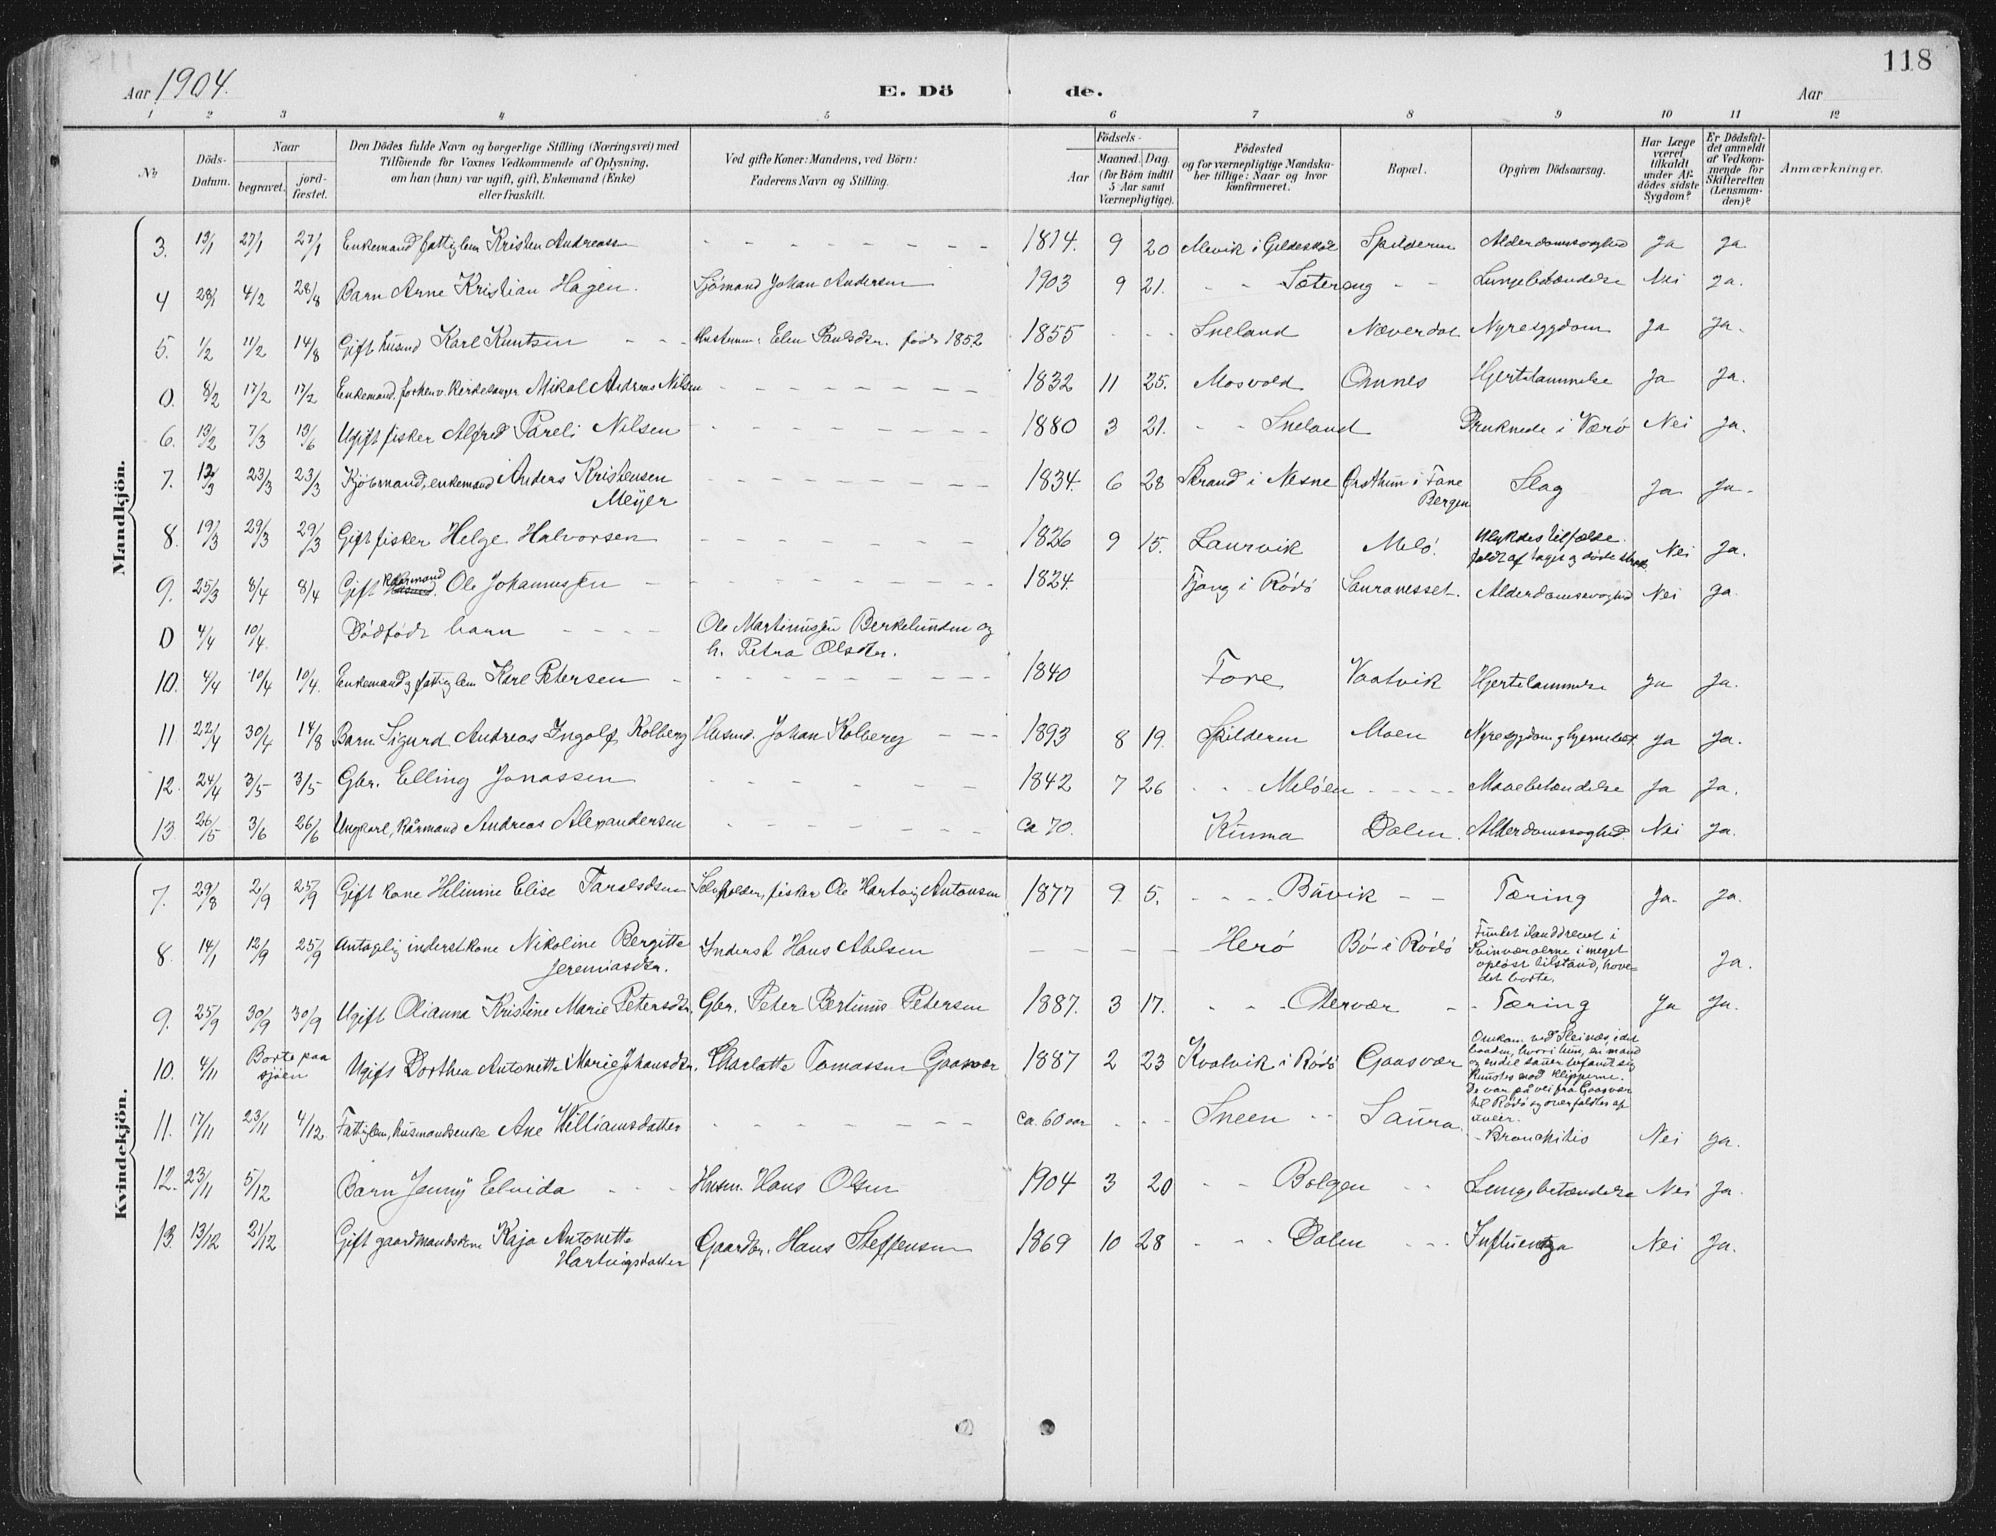 118
Aar 1904.
E. Dö de.
Aar
1 2 3 4 5 6 7 8 9 10 11 12
No
Döds-Datum.
Naar
begravet.
jord-fæstet.
Den Dödes fulde Navn og borgerlige Stilling (Næringsvei) med
Tilföiende for Voxnes Vedkommende af Oplysning,
om han (hun) var ugift, gift, Enkemand (Enke)
eller fraskilt.
Ved gifte Koner: Mandens, ved Börn:
Faderens Navn og Stilling.
Födsels-
Aar
Maaned. Dag.
(for Börn indtil
5 Aar samt
Værnepligtige).
Födested
og for værnepligtige Mandska-
ber tillige: Naar og hvor
konfirmeret.
Bopæl.
Opgiven Dödsaarsag.
Har Læge
været
tilkaldt
under Af-
dödes sidste
Sygdom?
Er Dödsfal-
det anmeldt
af Vedkom-
mende for
Skifteretten
(Lensman-
den)?
Anmærkninger.
Mandkjön.
3. 13/1 27/1 27/1 Enkemand fattiglem Kristen Andreass 1814. 9 20 Mevik i Gildeskal Spilderen Alderdomssvaghed Ja Ja
4 28/1 4/2 28/8 Barn Arne Kristian Hagen. Sjömand Johan Andersen 1903 9 21. Sætereng Lungebetændelse Nei Ja.
5. 1/2 11/2 14/8 Gift husmd Karl Kuntsen Hustruen: Elen Paulsdtr. födt 1852 1855 Sneland Næverdal Nyresygdom Ja Ja.
0. 8/2 17/2 17/2 Enkemand, forhenv. Kirkesanger Mikal Andreas Nilsen 1832 11 25. Mosvold Ornes Hjertelammelse Ja Ja.
6. 13/2 7/3 13/6 Ugift fisker Alfred Pareli Nilsen 1880 3 21. Sneland Druknede i Værö Nei Ja.
7. 12/3 23/3 23/3 Kjöbmand, enkemand Anders Kristensen
Meyer 1834. 6 28 Strand i Nesne i Fane
Bergen Slag Ja Ja.
8. 19/3 29/3 29/3 Gift fisker Helge Halvorsen 1826 9 15. Laurvik Melö. Ulykkestilfælde.
faldt af taget og döde strax. Nei Ja.
9. 25/3 8/4 8/4 Gift Kaarmand Ole Johannessen 1824. Tjong i Rödö Sauranesset. Alderdomssvaghed Nei Ja.
0 4/4 10/4. Dödfödt barn Ole Martinussen Berkelunden og
h. Petra Olsdtr.
10. 4/4 10/4 10/4. Enkemand og fattiglem Karl Petersen 1840 Fore Vaatvik Hjertelammelse Ja Ja.
11 22/4 30/4 14/8 Barn Sigurd Andreas Ingolf Kolberg Husmd. Johan Kolberg 1893 8 19. Spilderen Moen Nyresygdom og hjernebet. Ja Ja.
12. 24/4 3/5 3/5 Gbr. Elling Jonassen 1842 7 26 Melöen Mavebetændelse Ja Ja.
13 26/5 3/6 26/6 Ungkarl, kårmand Andreas Alexandersen Ca 70. Kunna Dalen. Alderdomssvaghed Nei Ja.
Kvindekjön.
7. 29/8 2/9 25/9 Gift kone Helmine Elise Taraldsen Selvholder, fisker Ole Hartvig Antonsen 1877 9. 5. Buvik Tæring Ja. Ja.
8. 14/1 12/9 25/9 Antagelig inderst kone Nikoline Bergitte
Jeremiasdtr. Inderst Hans Abelsen Herö Bö i Rödö Fundet ilanddrevet i
Svinværoerne i meget
oplöst tilstand, hove-
det borte. Ja.
9. 25/9 30/9 30/9 Ugift Olianna Kristine Marie Petersdtr. Gbr. Peter Bertinus Petersen 1887. 3 17. Otervær Tæring Ja Ja.
10. 4/11 Borte paa
sjöen Ugift Dorthea Antonette Marie Johansdtr. Charlotte Tomassen Gaasvær 1887 2 23 Kvalvik i Rödö Gaasvær Omkom ved Steinæs, i det
baaden, hvori hun, en mand
og endel sauer befandt sig
knustes mod klipperne.
De var på vei fra Gaasvær
til Rödö og overfaldtes af
uveir.
11. 17/11 23/11 4/12 Fattiglem, husmandsenke Ane Williamsdatter ca. 60 aar Sneen Saura. Bronchitis Nei Ja.
12. 23/11 5/12 Barn Jenny Elvida Husm. Hans Olsen 1904 3 20 Bolgen Lungebetændelse Nei Ja.
13. 13/12 21/12 Gift gaardmandskone Kaja Antonette
Hartvigsdatter Gaardbr. Hans Steffensen 1869 10 28 Dalen Influenza Nei Ja.